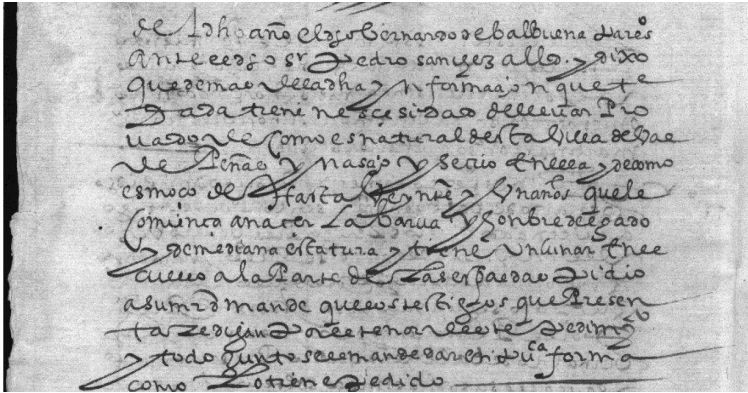 de dho año el dho bernardo de balbuena pareº
ante el dho sr Pedro sanchez alld. y dixo
que demas de la dha ynformaçion que tº
dada tiene nescesidad de lleuar Pro
uado de como es natural desta Villa de Val
de Peñas y nasçio y se crio en ella, y de como
es moço de hasta Veynte y Vn años que le
comiença a naçer la barua y honbre delgado
y de mediana estatura y tiene Vn lunar en el
cuello a la Parte de las espaldas Pidio
a su mrd mande que los testigos que Presen
tare digan Por el tenor deste Pedimiº
y todo junto se le mande dar en Puca forma
como lo tiene Pedido